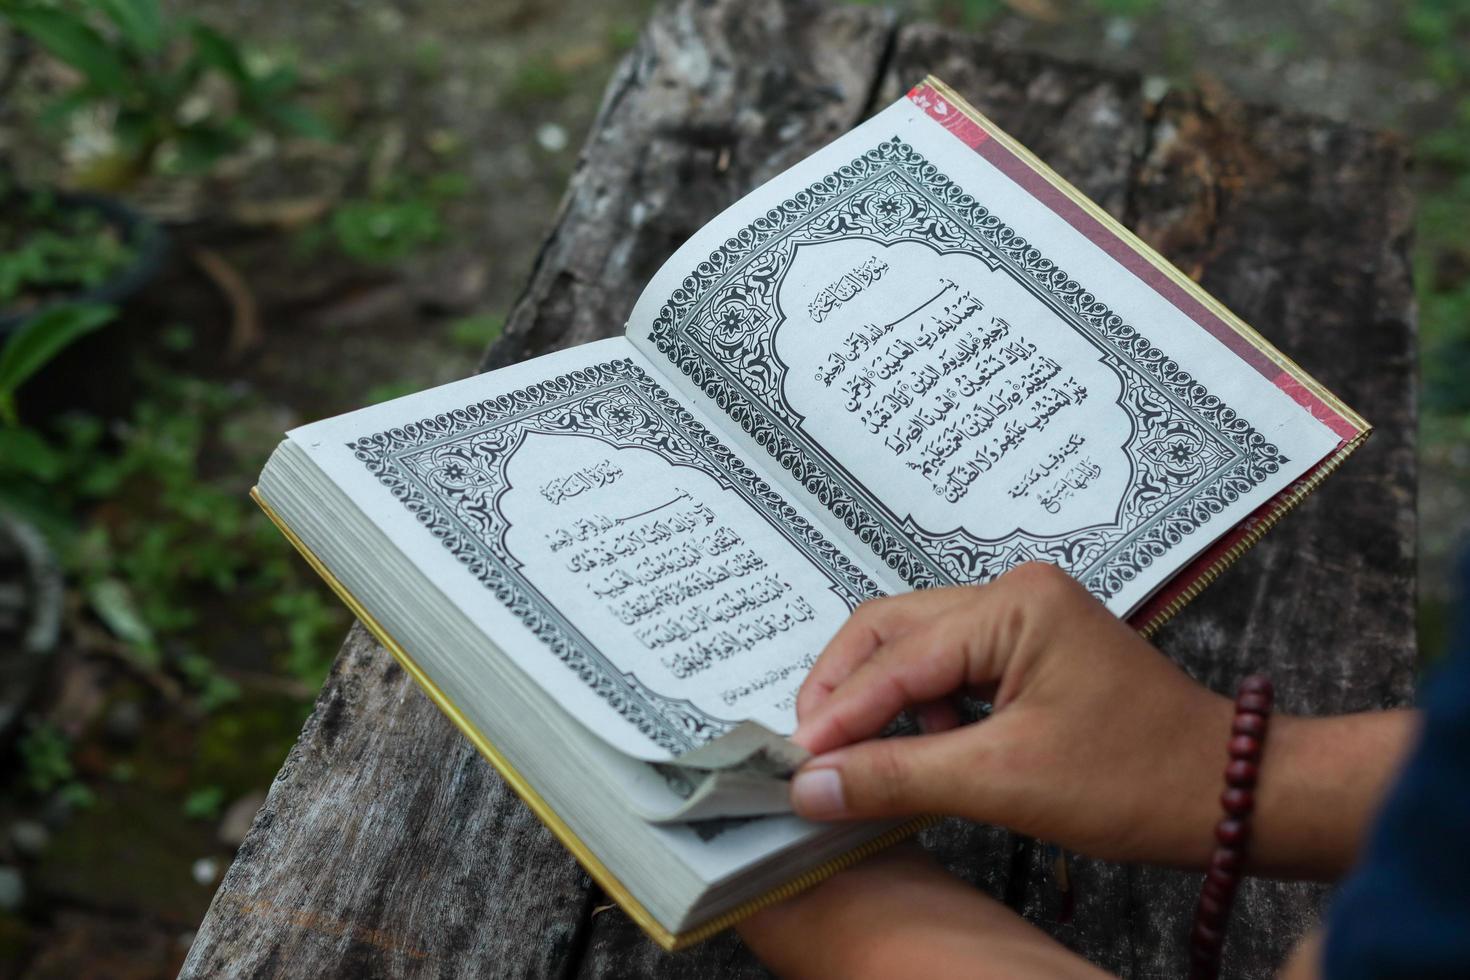 سورة الفاتحة
بسم الله الرحمن الرحيم
الحمد لله رب العلمين الرحمن
الرحيم ملك يوم الدين إياك نعبد
وإياك نستعين اهدنا الصراط
المستقيم صراط الذين أنعمت عليهم
غير المغضوب عليهم ولا الضالين
مكية وقيل مدنية
وآياتها سبع
سورة البقرة
بسم الله الرحمن الرحيم
الم ذلك الكتب لا ريب فيه هدى
للمتقين الذين يؤمنون بالغيب
ويقيمون الصلوة ومما رزقنهم ينفقون
والذين يؤمنون بما أنزل إليك وما
أنزل من قبلك وبالآخرة هم يوقنون